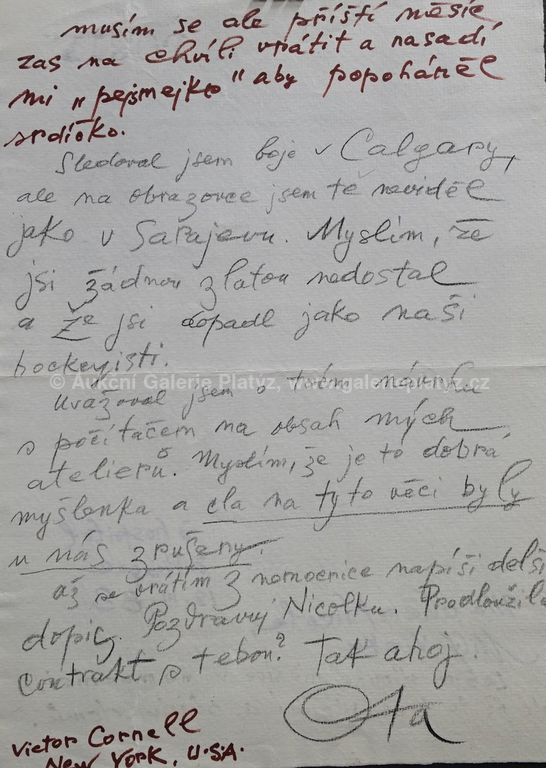 musím se ale příští měsíc
zas na chvíli vrátit a nasadí
mi "pejsmejkr" aby popoháněl
srdíčko.
Sledoval jsem boje v Calgary,
ale na obrazovce jsem tě neviděl
jako v Sarajevu. Myslím, že
jsi žádnou zlatou nedostal
a že jsi dopadl jako naši
hockeyisti.
© Aukční Galerie Platýz, www.galerieplatyz.cz
Uvažoval jsem o tvém návrhu
s počítačem na obsah mých
atelierů. Myslím, že je to dobrá
myšlenka a cla na tyto věci byly
u nás zrušeny.
Až se vrátím z nemocnice napíši delší
dopis. Pozdravuj Nicolku. Prodloužila
contrakt s tebou? Tak ahoj
Ota
Victor Cornell
New York, U.S.A.